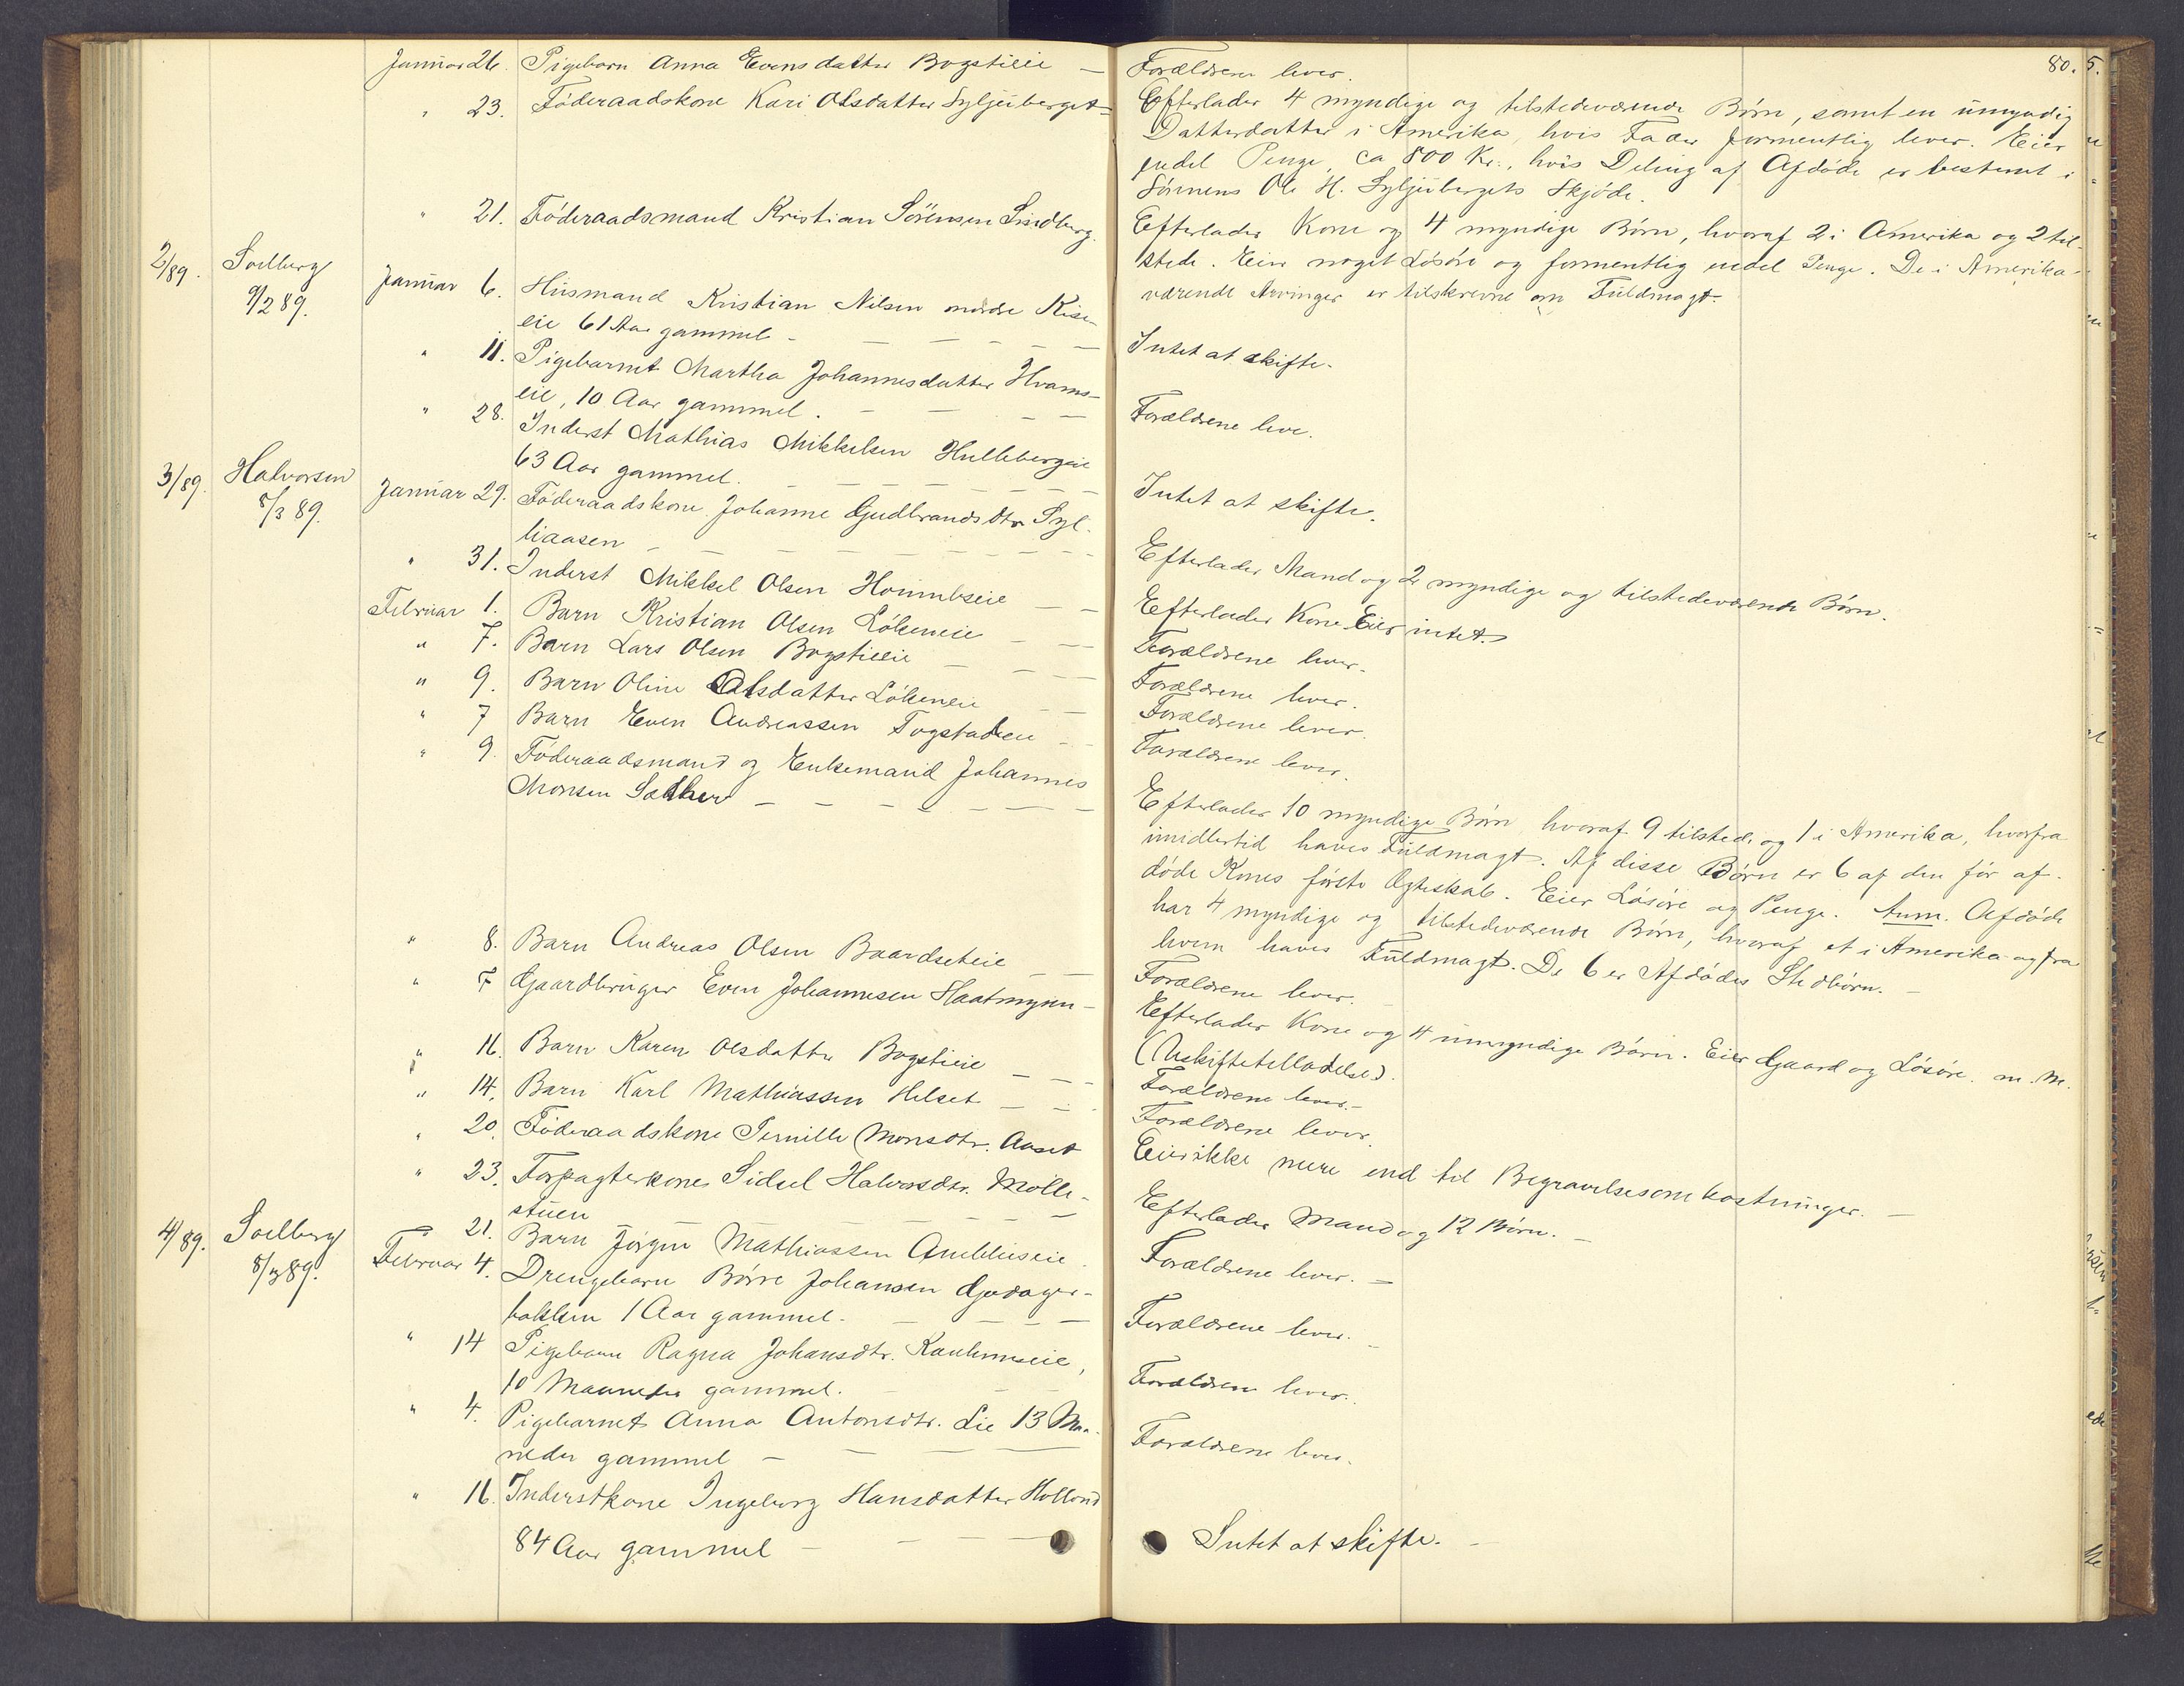 80.
Januar 26. Pigebarn Anna Evensdatter Bogstieie —
Forældrene lever.
" 23. Föderaadskone Kari Olsdatter Syljuberget
Efterlader 4 myndige og tilstedeværende Börn, samt en umyndig
Datterdatter i Amerika, hvis Fader formentlig lever. Eier
endel Penge, ca 800 Kr., hvis Deling af Afdöde er bestemt i
Sönnens Ole H. Syljubergets Skjöde.
" 21. Föderaadsmand Kristian Sörensen Lindberg.
Efterlader Kone og 4 myndige Börn, hvoraf 2 i Amerika og 2 til
stede. Eier noget Lösöre og formentlig endel Penge. De i Amerika
værende Arvinger er tilskrevne om Fuldmagt.
2/89. Soelberg
9/2 89.
Januar 6. Husmand Kristian Nilsen nordre Kise-
eie 61 Aar gammel —
Intet at skifte.
" 11. Pigebarnet Martha Johannesdatter Hvams-
eie, 10 Aar gammel. —
Forældrene leve.
" 28. Inderst Mathias Mikkelsen Hullebergeie
63 Aar gammel. —
Intet at skifte.
3/89. Halvorsen
8/3 89.
Januar 29. Föderaadskone Johanne Gudbrandsdtr Syl-
liaasen —
Efterlader Mand og 2 myndige og tilstedeværende Börn.
" 31. Inderst Mikkel Olsen —
Efterlader Kone. Eier intet.
Februar 1. Barn Kristian Olsen Lökeneie —
Forældrene lever.
" 7. Barn Lars Olsen Bogstieie —
Forældrene lever.
" 9. Barn Oline Olsdatter Lökeneie —
Forældrene lever.
" 7 Barn Even Andreassen Togstadeie —
Forældrene lever.
" 9. Föderaadsmand og Enkemand Johannes
Monsen Sæther —
Efterlader 10 myndige Börn hvoraf 9 tilstede og 1 i Amerika, hvorfra
imidlertid haves Fuldmagt. Af disse Börn er 6 af den för af-
döde Kones förste Ægteskab. Eier Lösöre og Penge. Anm. Afdöde
har 4 myndige og tilstedeværende Börn, hvoraf et i Amerika og fra
hvem haves Fuldmagt. De 6 er Afdödes Stedbörn. —
" 8. Barn Andreas Olsen Baardseteie —
Forældrene lever.
" 7 Gaardbruger Even Johannesen Haatmyren —
Efterlader Kone og 4 umyndige Börn. Eier Gaard og Lösöre m. m.
(Uskiftetilladelse).
" 16. Barn Karen Olsdatter Bogstieie —
Forældrene lever. —
" 14. Barn Karl Mathiassen Helset —
Forældrene lever.
" 20. Föderaadskone Pernille Monsdtr. Aaset
Eier ikke mere end til Begravelsesomkostninger. —
" 23. Forpagterkone Sidsel Halvorsdtr. Mölle-
stuen —
Efterlader Mand og 12 Börn. —
" 21. Barn Jörgen Mathiassen
Forældrene lever. —
4/89. Soelberg
8/3 89.
Februar 4. Drengebarn Börre Johansen Gjödager-
bakken 1 Aar gammel. —
Forældrene lever.
" 14 Pigebarn Ragna Johansdtr. Kauknuseie,
10 Maaneder gammel. —
Forældrene lever.
" 4. Pigebarnet Anna Antonsdtr. Lie 13 Maa-
neder gammel —
Forældrene lever.
" 16. Inderstkone Ingeborg Hansdatter Holland
84 Aar gammel —
Intet at skifte. —